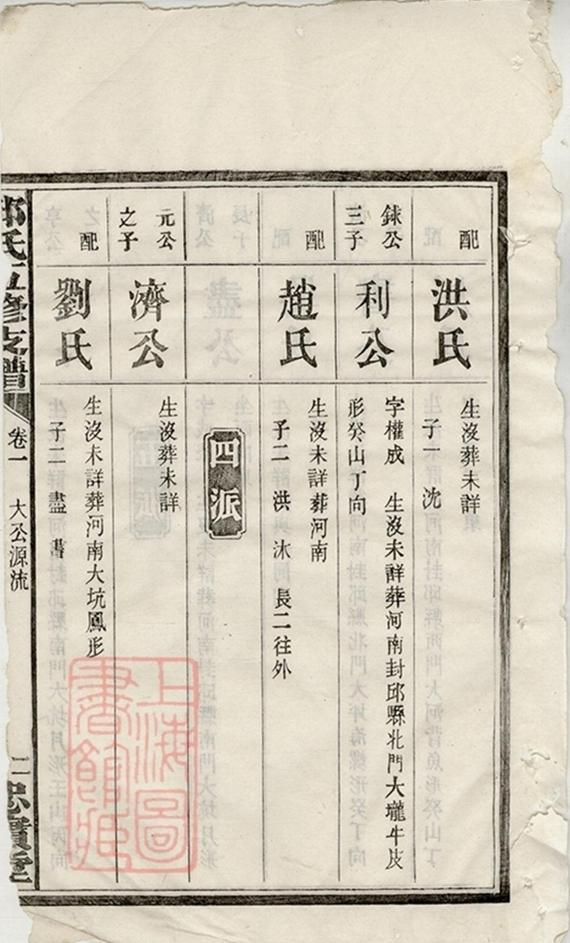 配
洪氏
生沒葬未詳
子一　沈
銇公
三子
利公
字權成　生沒未詳葬河南封邱縣北門大壠牛皮
形癸山丁向
配
趙氏
生沒未詳葬河南
子二　洪　沐　長二往外
四派
元公
之子
濟公
生沒葬未詳
配
劉氏
生沒未詳葬河南大坑鳳形
子二　盡　書
氏五修支譜
卷一　大公源流
二
上海圖
書館藏